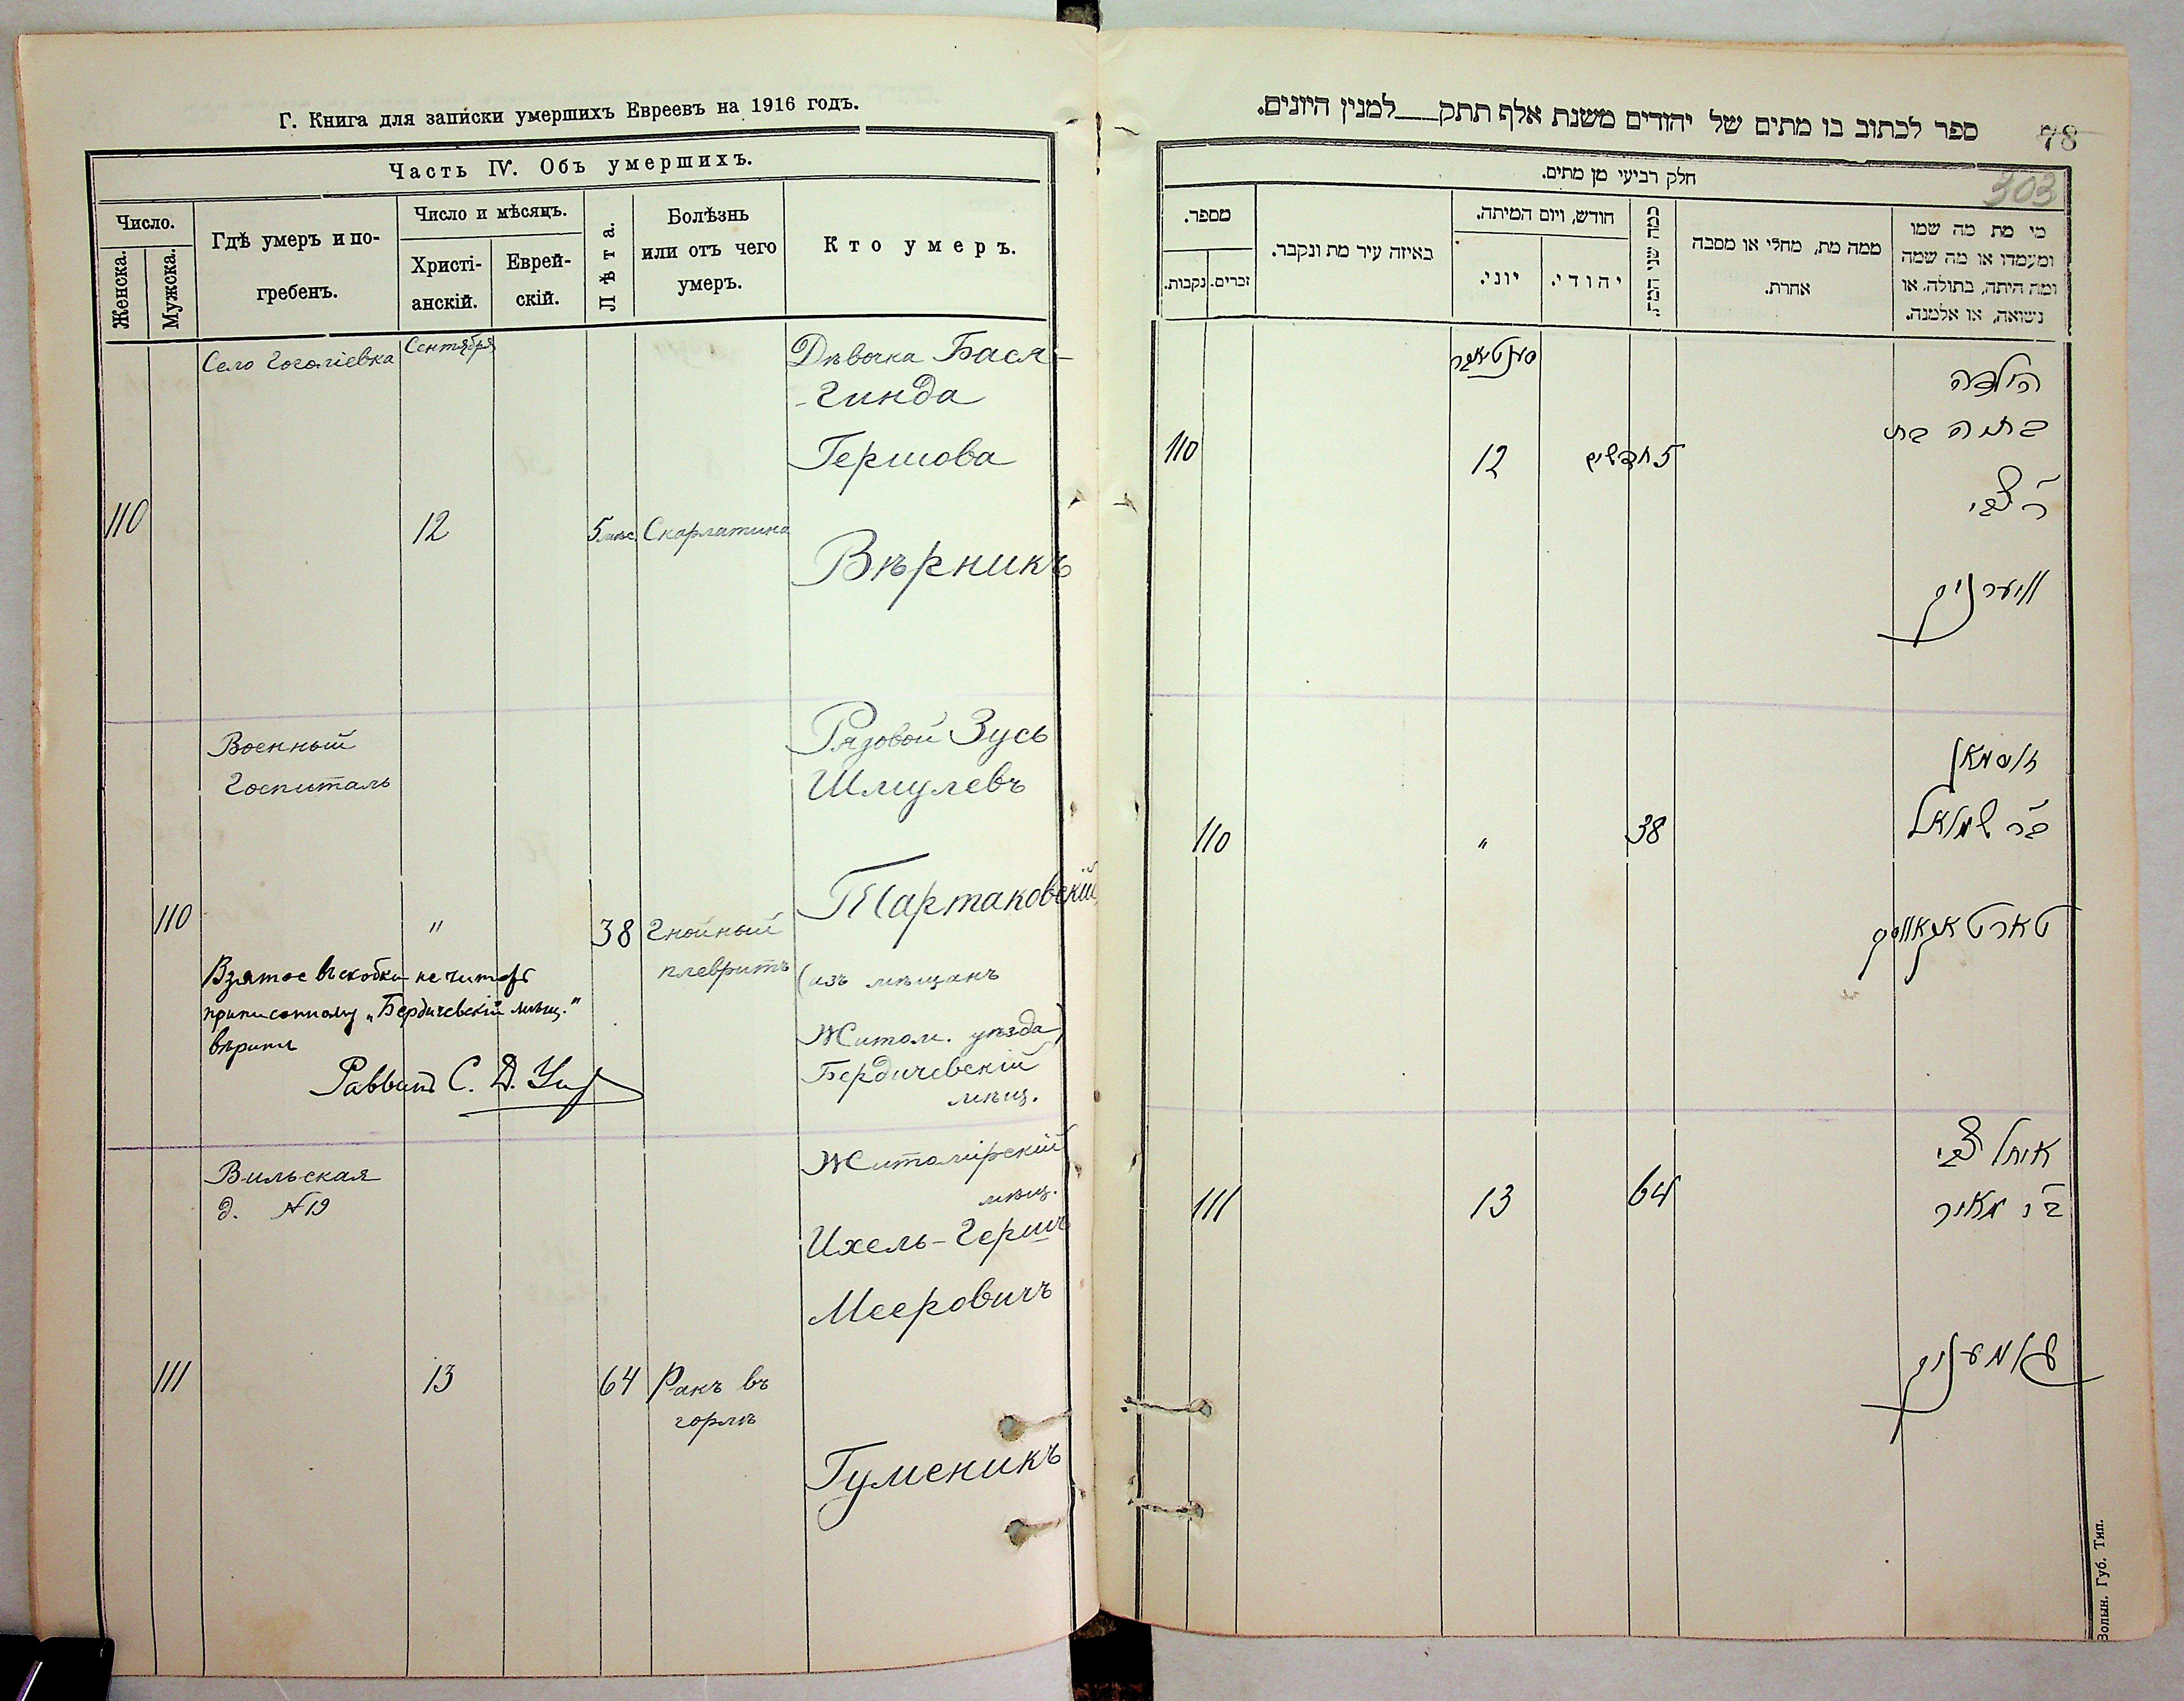 Г. Книга для записки умершихъ Евреевъ на 1916 годъ.
Часть IV. Объ умершихъ.
Число.
Женска.
Мужска.
Гдѣ умеръ и по-
гребенъ.
Число и мѣсяцъ.
Христі-
анскій.
Еврей-
скій.
Лѣта.
Болѣзнь
или отъ чего
умеръ.
Кто умеръ.
Село Гоголіевка
Сентября
Дѣвочка Бася-
-Гинда
Гершова
110
12
5 мѣс.
Скарлатина
Вѣрникъ
Военный
Госпиталь
Рядовой Зусь
Шмулевъ
Тартаковскій
110
"
38
Гнойный
плевритъ
(изъ мѣщанъ
Житом. уѣзда)
Бердичевскій
мѣщ.
Взятое въ скобки не читать
приписанному „Бердичевскій мѣщ."
вѣрить
Раввинъ С. Д.
Вильская
д. №19
Житомірскій
мѣщ.
Ихель-Герш
Мееровичъ
111
13
64
Ракъ въ
горлѣ
Гуменикъ
ספר לכתוב בו מתים של יהודים משנת אלף תתק למנין היונים.
78
303
חלק רביעי מן מתים.
מספר.
נקבות.
זכרים.
באיזה עיר מת ונקבר.
חודש, ויום המיתה.
יוני.
יהודי.
כמה שני המת.
ממה מת, מחלי או מסבה
אחרת.
מי מת מה שמו
ומעמדו או מה שמה
ומה היתה, בתולה, או
נשואה, או אלמנה.
סענטאבר
הילדה
בתיה בת
110
12
5 חדשים
ר' צבי
ווערניק
זוסמאן
בר שמואל
110
"
38
טארטאקאווסקי
איחל צבי
בר מאיר
111
13
64
גומעניק
Волын. Губ. Тип.